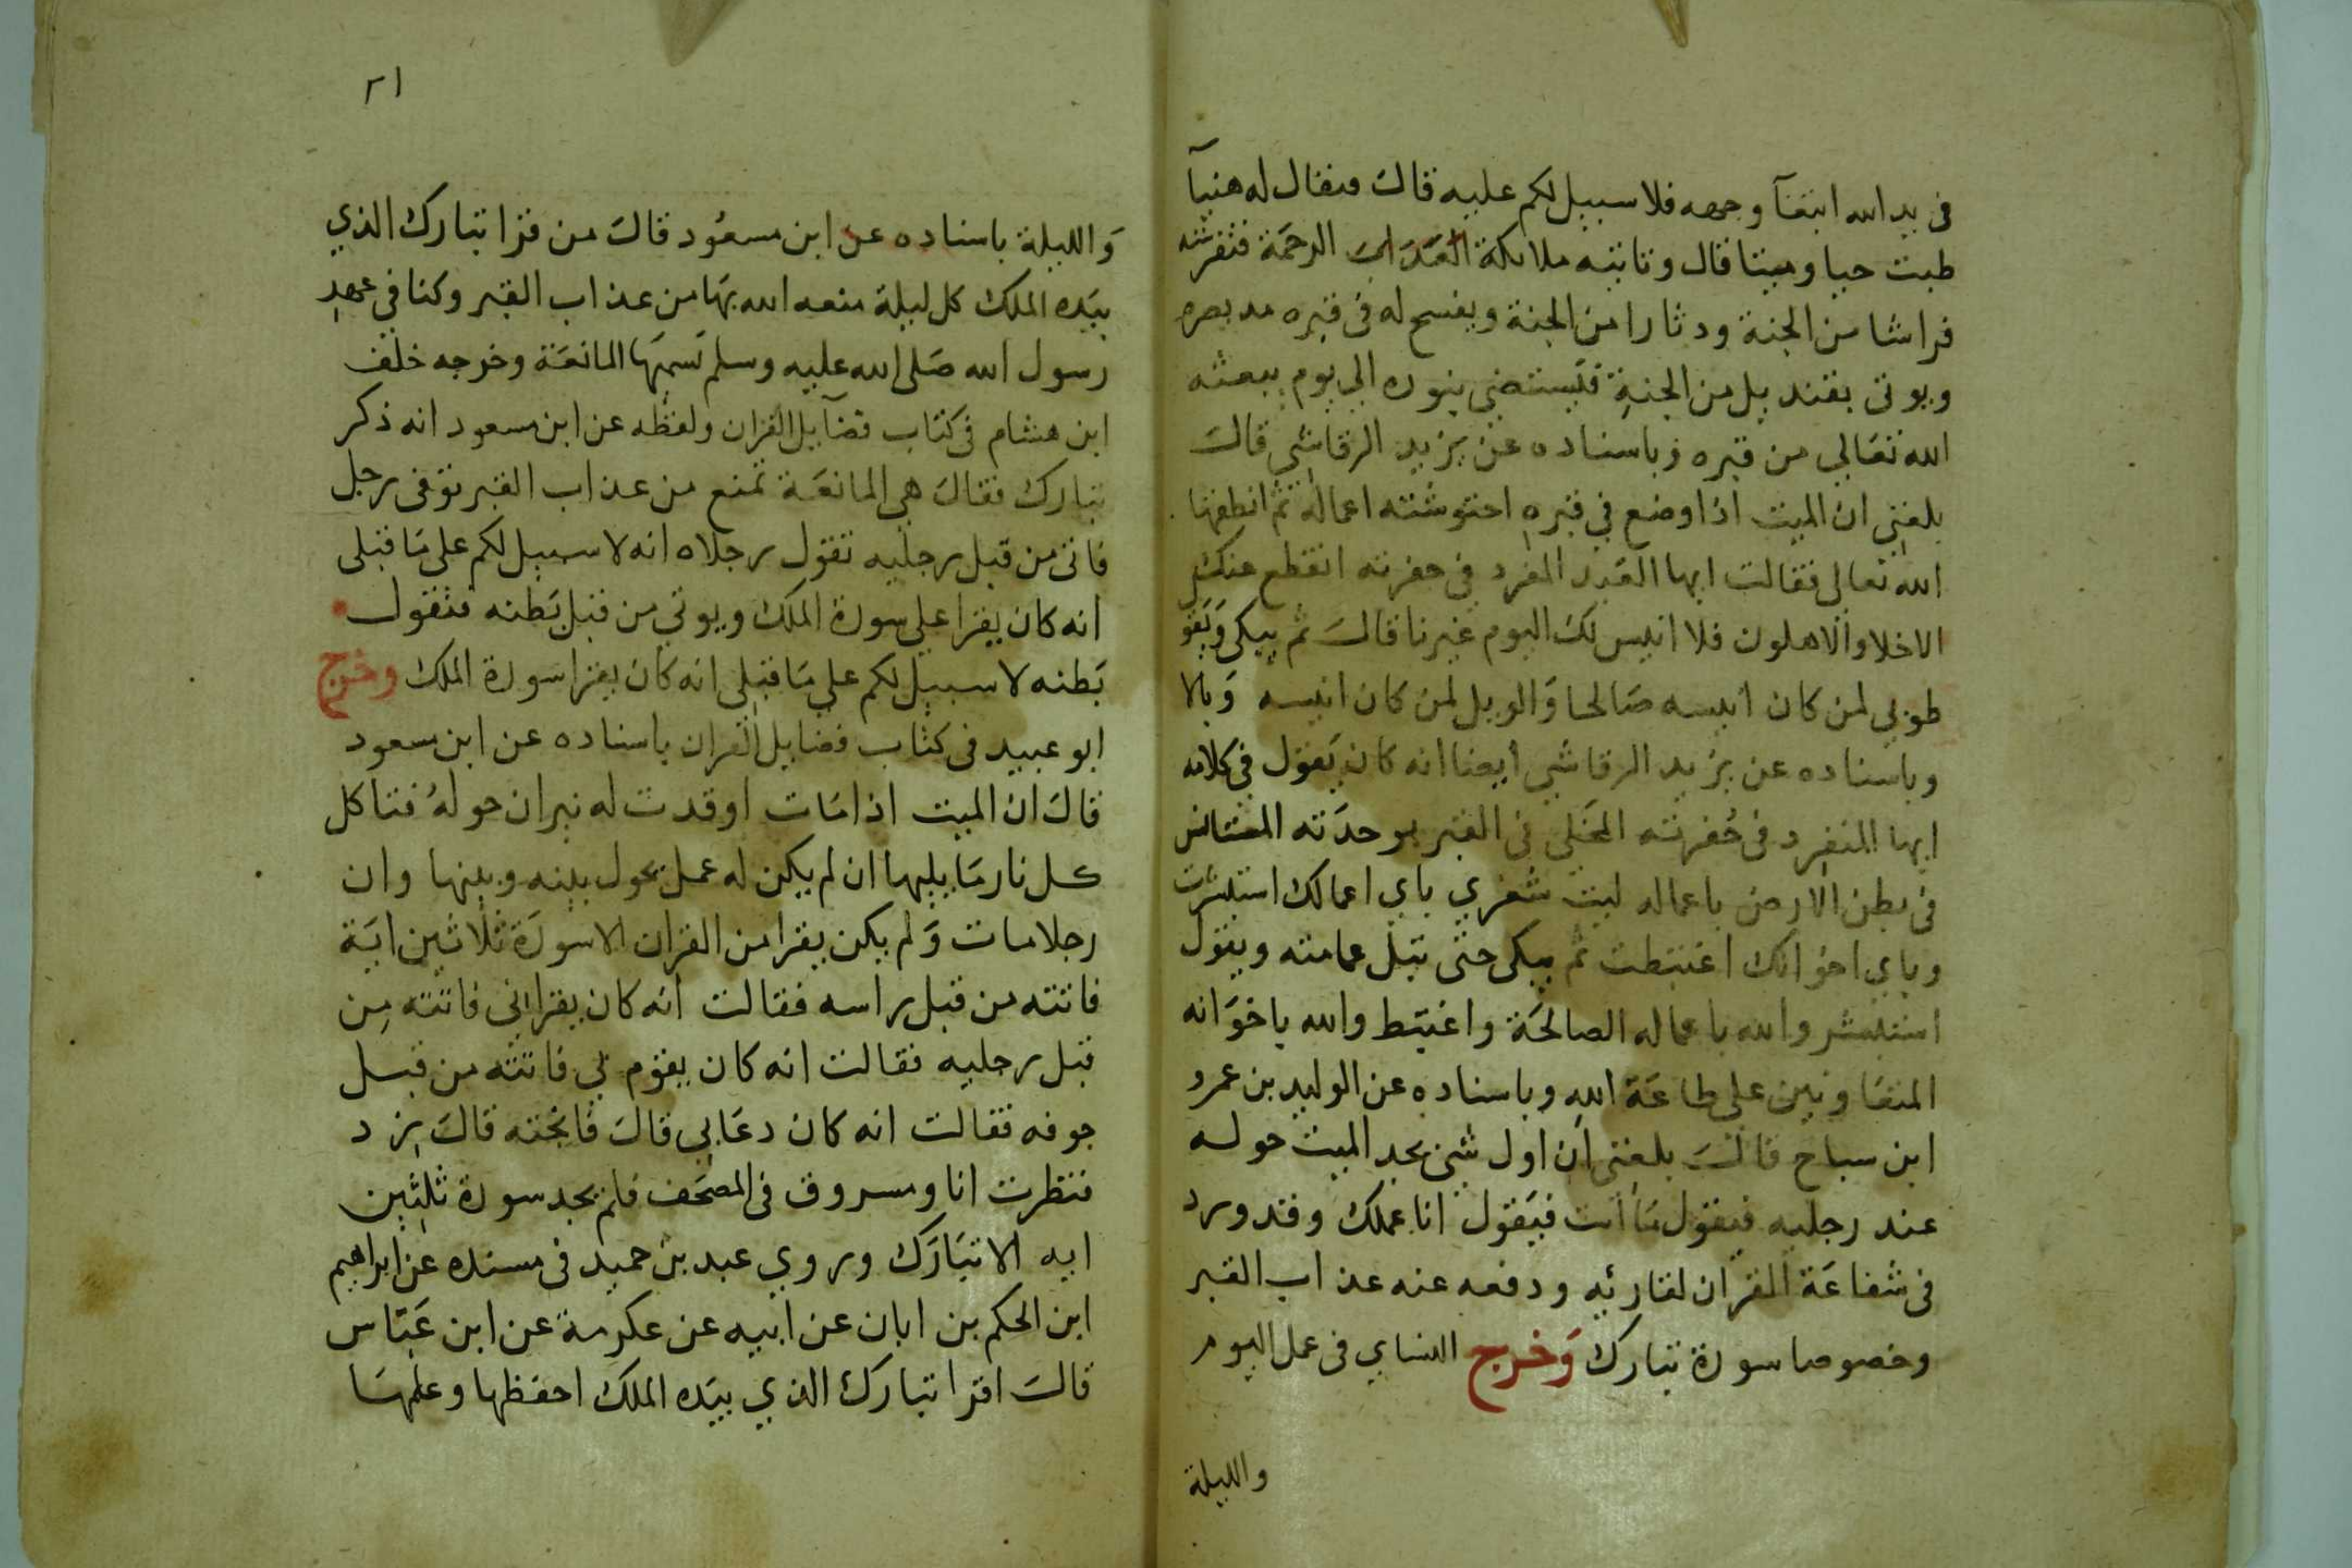 في يد الله ابتغآ وجهه فلا سبيل لكم عليه قال فيقال له هنيآ
طبت حيا وميتا قال وتاتيه ملائكة الرحمة فتفرشه
فراشا من الجنة ودثارا من الجنة ويفسح له في قبره مد بصره
ويوتى بقنديل من الجنة فيستضي بنوره الي يوم يبعثه
الله تعالي من قبره وباسناده عن يزيد الرقاشي قال
بلغني ان الميت اذا وضع في قبره احتوشته اعماله ثم انطقها
الله تعالى فقالت ايها العبد المفرد في حفرته انقطع عنك
الاخلا والاهلون فلا انيس لك اليوم غيرنا قال ثم يبكي ويقو
طوبي لمن كان انيسه صالحا والويل لمن كان انيسه وبالا
وباسناده عن يزيد الرقاشي ايضا انه كان يقول في كلامه
ايها المنفرد في حفرته المخلي في القبر بوحدته المستانس
في بطن الارض باعماله ليت شعري باي اعمالك استبشرت
وباي اخوانك اغتبطت ثم يبكي حتى تبل عمامته ويقول
استبشر والله باعماله الصالحة واغتبط والله باخوانه
المتعاونين على طاعة الله وباسناده عن الوليد بن عمرو
ابن سباح قال بلغني ان اول شي يجد الميت حوله
عند رجليه فيقول ما انت فيقول انا عملك وقد ورد
في شفاعة القران لقارئه ودفعه عنه عذاب القبر
وخصوصا سورة تبارك وخرج النساي في عمل اليوم
والليلة
٢١
والليلة باسناده عن ابن مسعود قال من قرا تبارك الذي
بيده الملك كل ليلة منعه الله بها من عذاب القبر وكنا في عهد
رسول الله صلى الله عليه وسلم نسميها المانعة وخرجه خلف
ابن هشام في كتاب فضآيل القران ولفظه عن ابن مسعود انه ذكر
تبارك فقال هي المانعة تمنع من عذاب القبر توفى رجل
فاتى من قبل رجليه تقول رجلاه انه لا سبيل لكم على ما قبلى
انه كان يقرا علي سورة الملك ويوتي من قبل بطنه فتقول
بطنه لا سبيل لكم علي ما قبلي انه كان يقرا سورة الملك وخرج
ابو عبيد في كتاب فضايل القران باسناده عن ابن سعود
قال ان الميت اذا مات اوقدت له نيران حوله فتاكل
كل نار ما يليها ان لم يكن له عمل يحول بينه وبينها وان
رجلا مات ولم يكن يقرا من القران الا سورة ثلاثين اية
فاتته من قبل راسه فقالت انه كان يقراني فاتته من
قبل رجليه فقالت انه كان يقوم بي فاتته من قبل
جوفه فقالت انه كان دعابي قال فانجته قال زد
فنظرت انا ومسروق في المصحف فلم نجد سورة ثلثين
ايه الا تبارك وروي عبد بن حميد في مسنده عن ابراهيم
ابن الحكم بن ابان عن ابيه عن عكرمة عن ابن عباس
قال اقرا تبارك الذي بيده الملك احفظها وعلمها